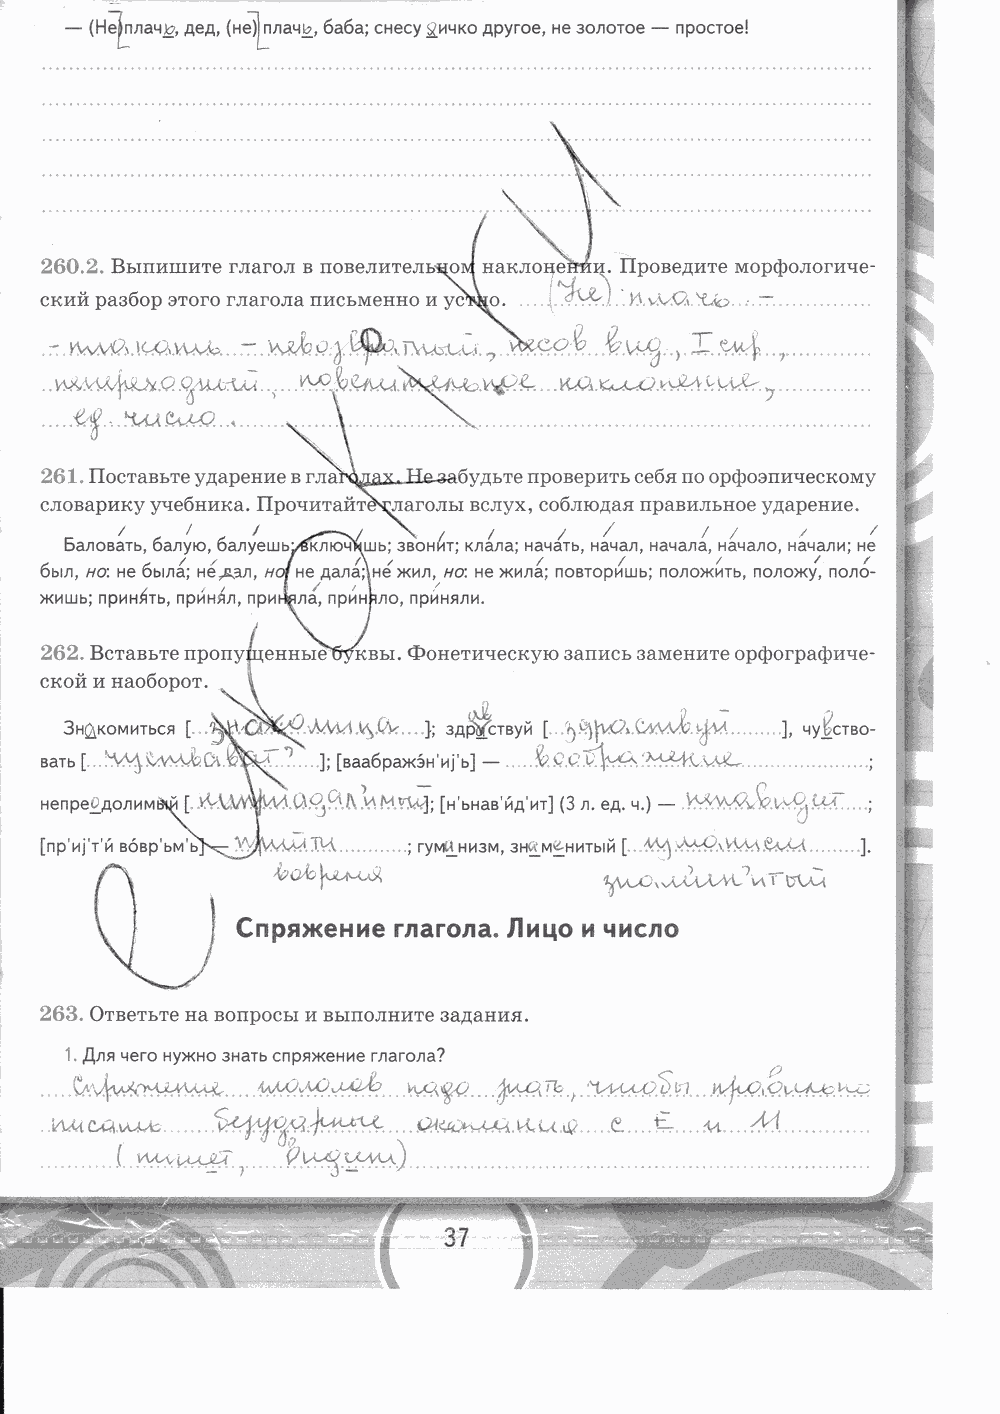 — (Не)плачь, дед, (не)плачь, баба; снесу яичко другое, не золотое — простое!
260.2. Выпишите глагол в повелительном наклонении. Проведите морфологиче-
ский разбор этого глагола письменно и устно. (Не) плачь –
- плакать – невозвратный, несов вид, I спр,
непереходный, повелительное наклонение,
ед. число.
261. Поставьте ударение в глаголах. Не забудьте проверить себя по орфоэпическому
словарику учебника. Прочитайте глаголы вслух, соблюдая правильное ударение.
Балова́ть, балу́ю, балу́ешь; включи́шь; звони́т; кла́ла; нача́ть, на́чал, начала́, на́чало, на́чали; не́
был, но: не была́; не́ дал, но: не дала́; не́ жил, но: не жила́; повтори́шь; положи́ть, положу́, поло́-
жишь; приня́ть, при́нял, приняла́, при́няло, при́няли.
262. Вставьте пропущенные буквы. Фонетическую запись замените орфографиче-
ской и наоборот.
Знакомиться [знакомица]; здравствуй [здраствуй], чувство-
вать [чуствават']; [ваабражэ́н'иј'ь] — воображение;
непреодолимый [ниприадал'имый]; [н'ьнав'и́д'ит] (3 л. ед. ч.) — ненавидит;
[пр'иј'т'и́ во́вр'ьм'ь] — прийти; гуманизм, знаменитый [ ].
вовремя знам'ин'итый
Спряжение глагола. Лицо и число
263. Ответьте на вопросы и выполните задания.
1. Для чего нужно знать спряжение глагола?
Спряжение глаголов надо знать, чтобы правильно
писать безударные окончания с Е и И
(пишет, видит)
37